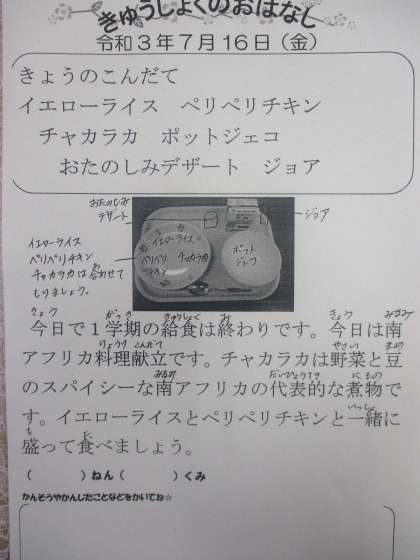 きゅうしょくのおはなし
令和３年７月１６日（金）
きょうのこんだて
イエローライス　ペリペリチキン
チャカラカ　ポットジェコ
おたのしみデザート　ジョア
おたのしみ
デザート
ジョア
イエローライス
ペリペリチキン
チャカラカは合わせて
もりましょう。
イエローライス
ペリペリ
チキン
チャカラカ
ポット
ジェコ
きょう　がっき　きゅうしょく　お　きょう　みなみ
今日で１学期の給食は終わりです。今日は南
りょうり　こんだて　やさい　まめ
アフリカ料理献立です。チャカラカは野菜と豆
みなみ　だいひょうてき　にもの
のスパイシーな南アフリカの代表的な煮物で
いっしょ
す。イエローライスとペリペリチキンと一緒に
も　た
盛って食べましょう。
（　　　）ねん（　　　　）くみ
かんそうやかんじたことなどをかいてね☆